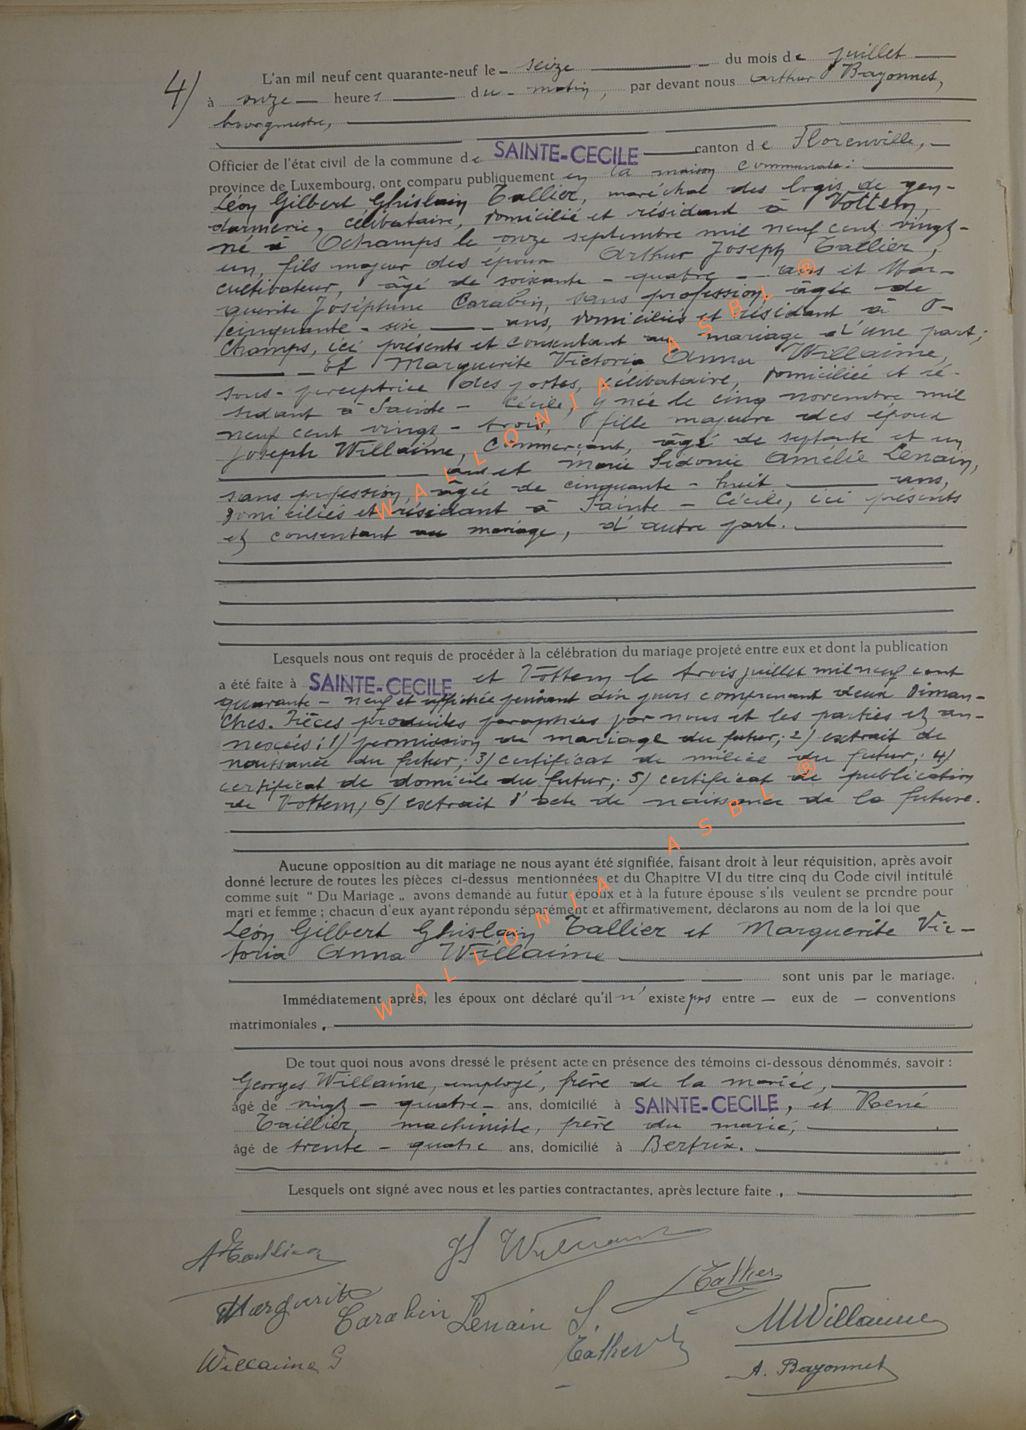 4)
L'an mil neuf cent quarante-neuf le - seize du mois de juillet
à onze heures du - matin, par devant nous Arthur Bayonnet,
bourgmestre,
Officier de l'état civil de la commune de SAINTE-CECILE canton de Florenville,
province de Luxembourg, ont comparu publiquement en la maison communale:
Léon Gilbert Ghislain Tallier, maréchal des logis de gen-
darmerie, célibataire, domicilié et résidant à Vottem,
né à Ochamps le onze septembre mil neuf cent vingt-
un, fils majeur des époux Arthur Joseph Tallier,
cultivateur, âgé de soixante - quatre - ans et Mar-
guerite Joséphine Carabin, sans profession, âgée de
cinquante - six ans, domiciliés et résidant à O-
champs, ici présents et consentant au mariage d'une part;
Et Marguerite Victoria Anna Willaime,
sous-perceptrice des postes, célibataire, domiciliée et ré-
sidant à Sainte - Cécile, y née le cinq novembre mil
neuf cent vingt - trois, fille majeure des époux
Joseph Willaime, commerçant, âgé de septante et un
ans et Marie Sidonie Amélie Lenain,
sans profession, âgée de cinquante - huit ans,
domiciliés et résidant à Sainte - Cécile, ici présents
et consentant au mariage, d'autre part.
Lesquels nous ont requis de procéder à la célébration du mariage projeté entre eux et dont la publication
a été faite à SAINTE-CECILE et Vottem le trois juillet mil neuf cent
quarante - neuf et affichée pendant dix jours comprenant deux diman-
ches. Pièces produites paraphées par nous et les parties et an-
nexées: 1) permission de mariage du futur; 2) extrait de
naissance du futur; 3) certificat de milice du futur; 4)
certificat de domicile du futur; 5) certificat de publication
de Vottem; 6) extrait d'acte de naissance de la future.
Aucune opposition au dit mariage ne nous ayant été signifiée, faisant droit à leur réquisition, après avoir
donné lecture de toutes les pièces ci-dessus mentionnées et du Chapitre VI du titre cinq du Code civil intitulé
comme suit “ Du Mariage „ avons demandé au futur époux et à la future épouse s'ils veulent se prendre pour
mari et femme ; chacun d'eux ayant répondu séparément et affirmativement, déclarons au nom de la loi que
Léon Gilbert Ghislain Tallier et Marguerite Vic-
toria Anna Willaime
sont unis par le mariage.
Immédiatement après, les époux ont déclaré qu'il n'existe pas entre — eux de — conventions
matrimoniales.
De tout quoi nous avons dressé le présent acte en présence des témoins ci-dessous dénommés, savoir :
Georges Willaime, employé, frère de la mariée,
âgé de vingt - quatre - ans, domicilié à SAINTE-CECILE, et René
Taillier, machiniste, frère du marié,
âgé de trente - quatre ans, domicilié à Bertrix.
Lesquels ont signé avec nous et les parties contractantes, après lecture faite.
Tallier
Marguerite Carabin Lenain S. MWillaime
Willaime G A. Bayonnet
WALLONIA ASBL ®
WALLONIA ASBL ®